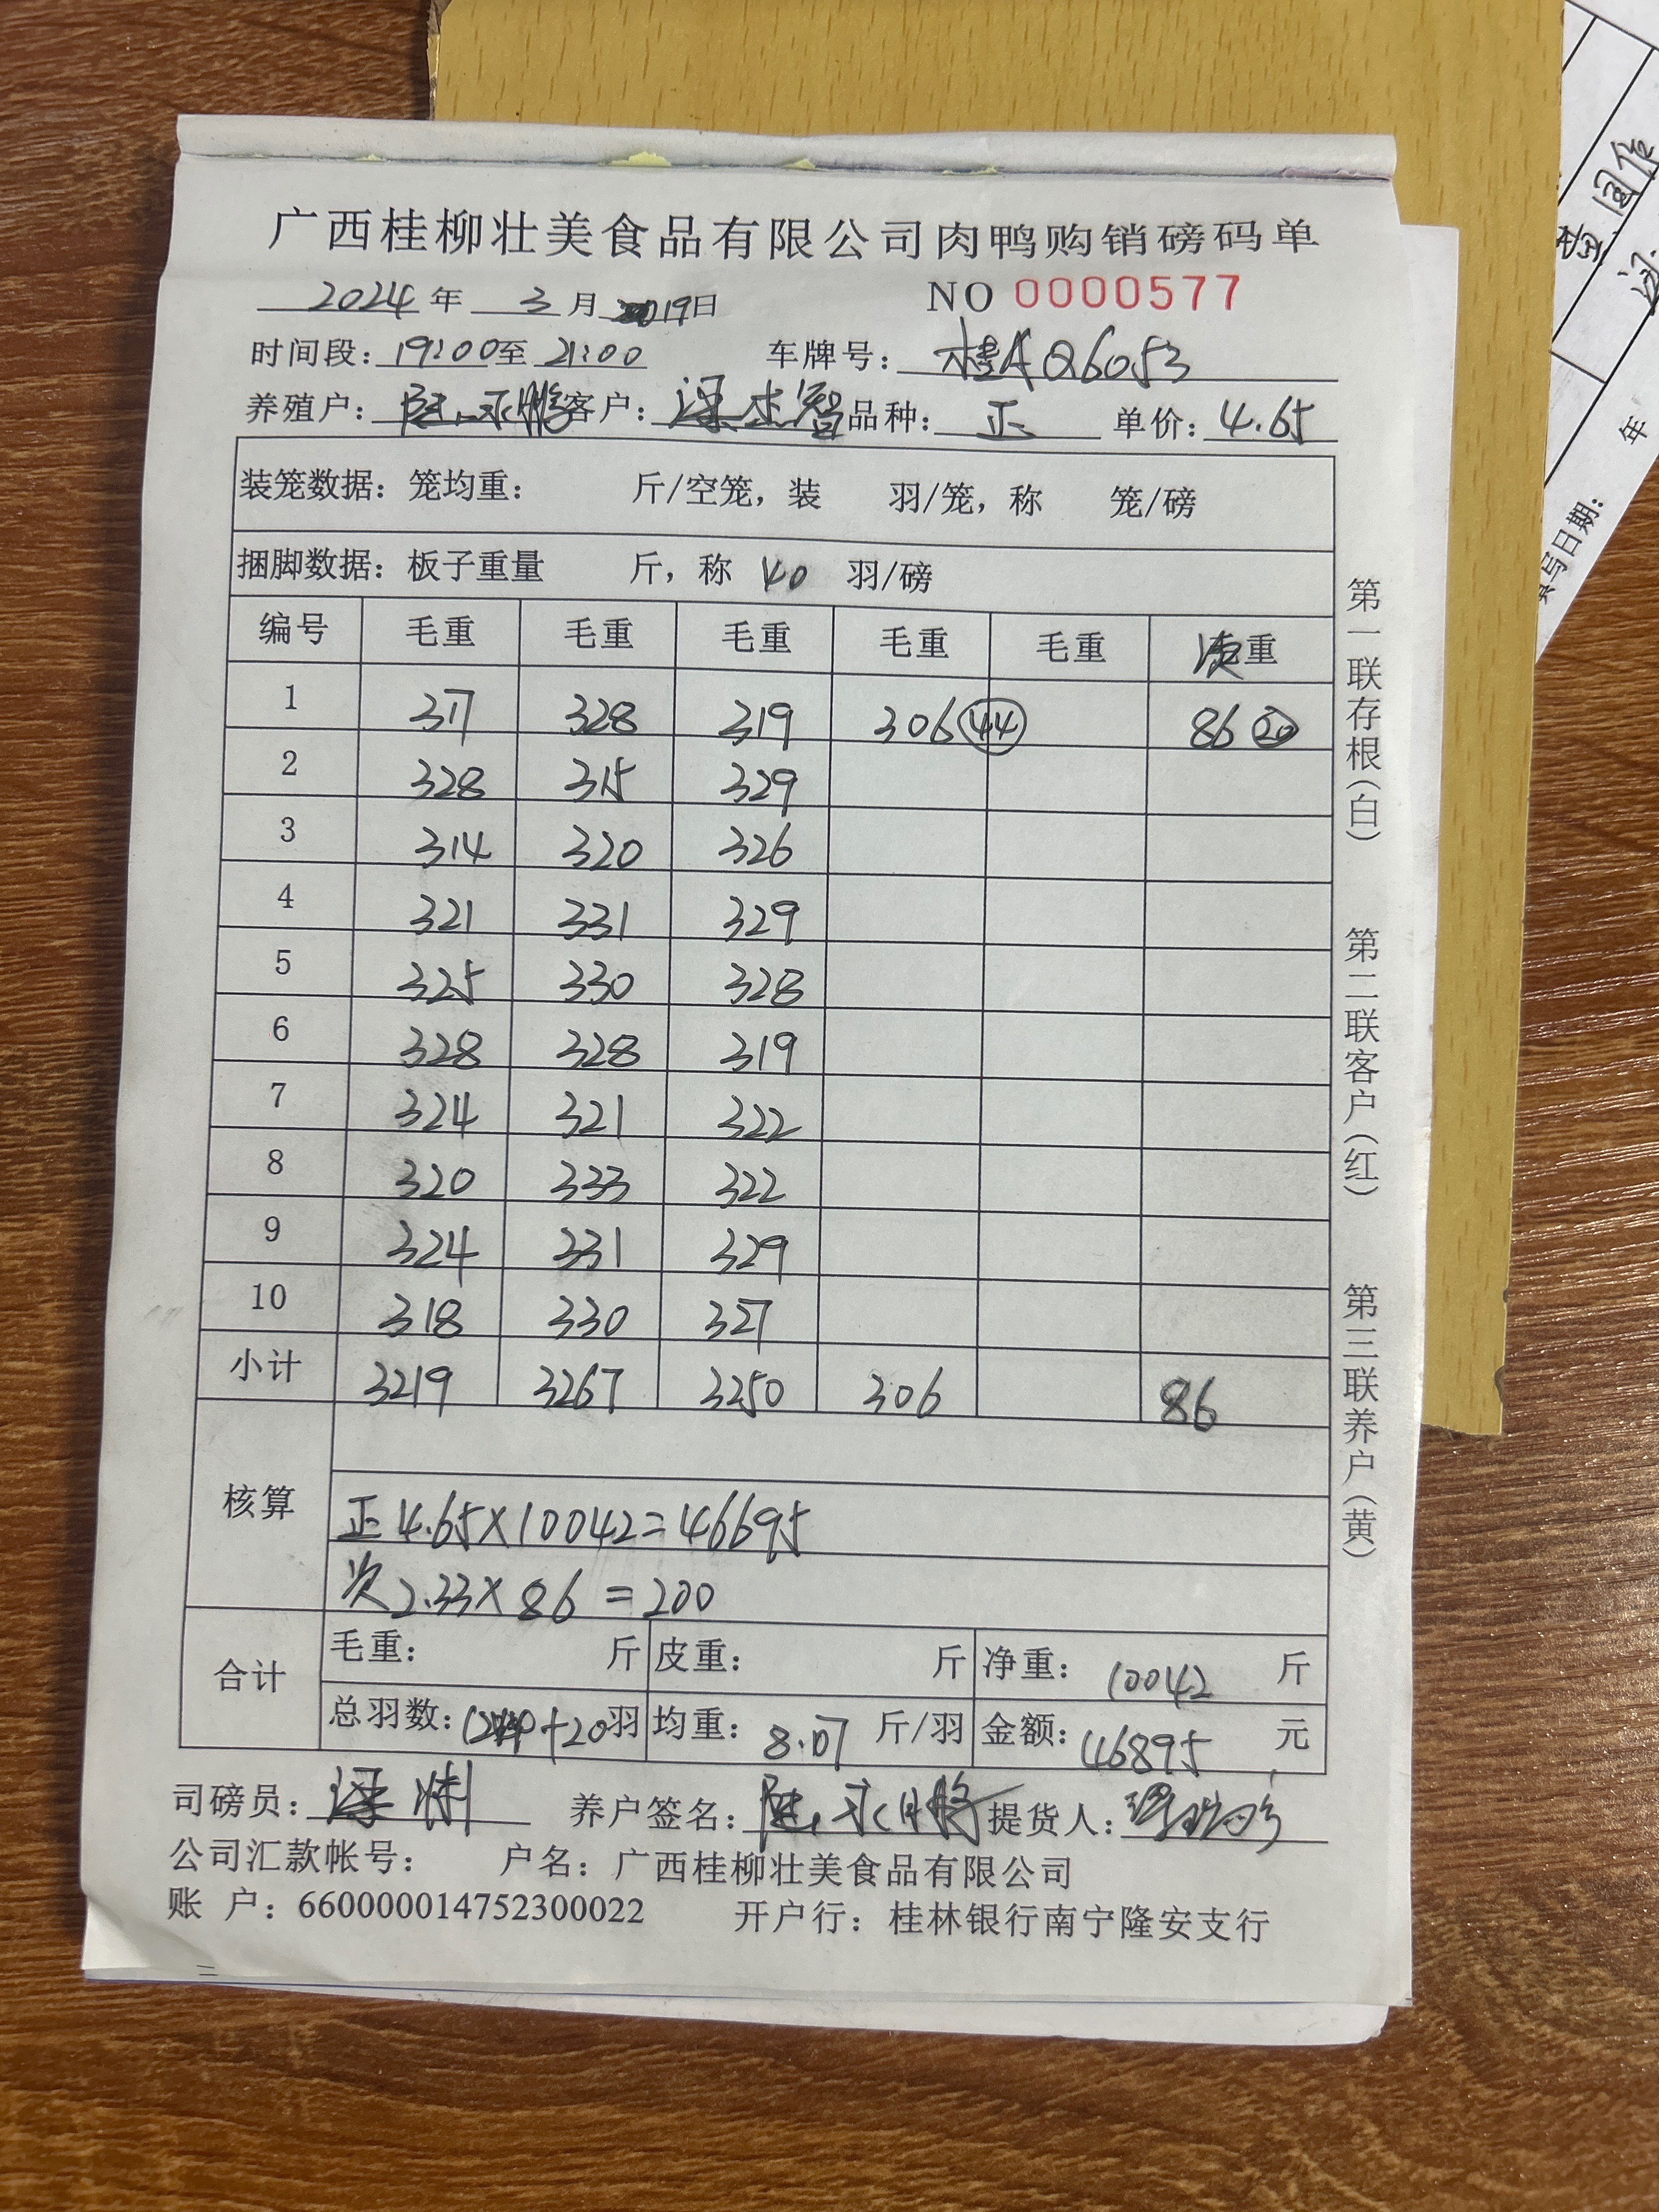 广西桂柳壮美食品有限公司肉鸭购销磅码单
2024年 3月 19日 NO 0000577
时间段: 19:00至 21:00 车牌号: 桂A Q6053
养殖户: 客户: 品种: 正 单价: 4.65
装笼数据: 笼均重: 斤/空笼, 装 羽/笼, 称 笼/磅
捆脚数据: 板子重量 斤, 称 40 羽/磅
编号 毛重 毛重 毛重 毛重 毛重 次重
1 317 328 319 306 44 86 20
2 328 315 329
3 314 320 326
4 321 331 329
5 325 330 328
6 328 328 319
7 324 321 322
8 320 333 322
9 324 331 329
10 318 330 327
小计 3219 3267 3250 306 86
核算
正 4.65×10042=46695
次 2.33×86=200
合计
毛重: 斤 皮重: 斤 净重: 10042 斤
总羽数: +20羽 均重: 8.07 斤/羽 金额: 46895 元
司磅员: 养户签名: 提货人:
公司汇款帐号: 户名: 广西桂柳壮美食品有限公司
账 户: 660000014752300022 开户行: 桂林银行南宁隆安支行
第一联存根(白) 第二联客户(红) 第三联养户(黄)
填写日期: 年